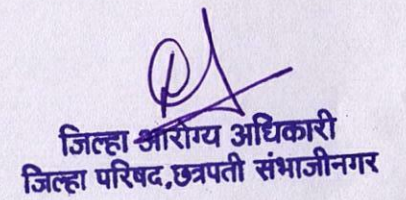 जिल्हा आरोग्य अधिकारी
जिल्हा परिषद,छत्रपती संभाजीनगर